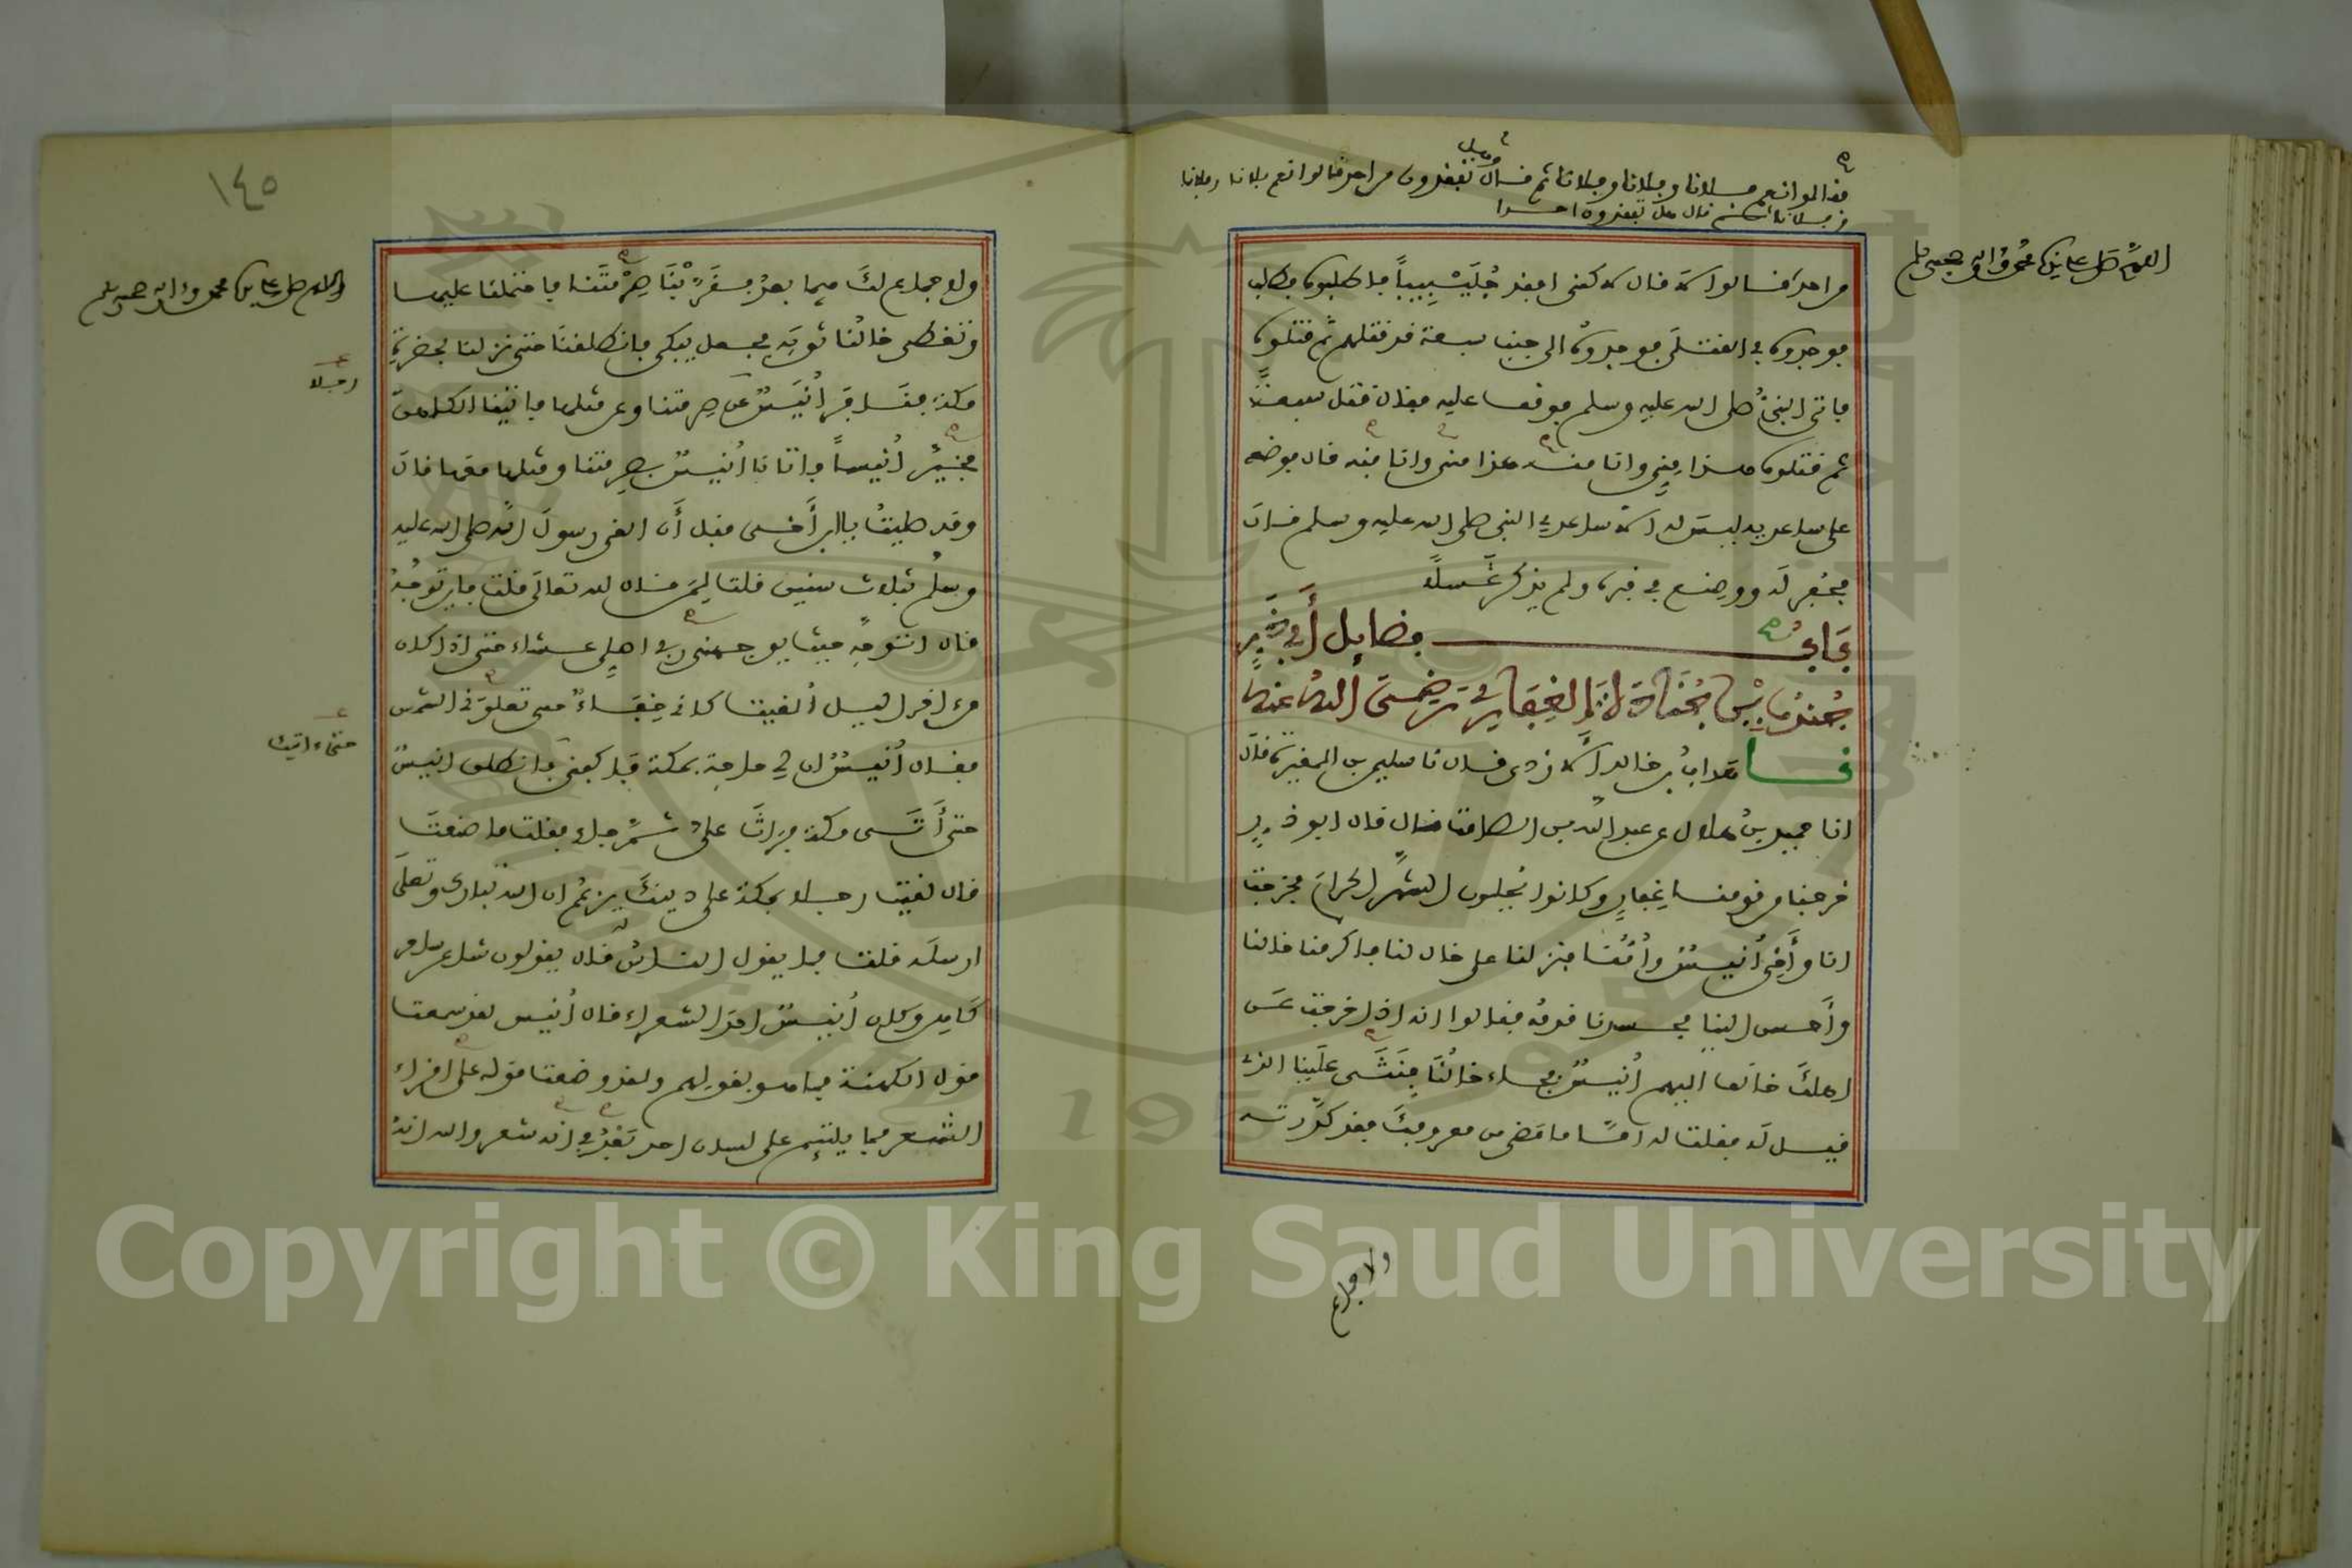 فقالوا نعم فلانا وفلانا وفلانا ثم قال وهل تفقدون من احد قالوا نعم فلانا وفلانا
وفلانا ثم قال هل تفقدون احدا
اللهم صل على سيدنا محمد وآله وصحبه وسلم
من احد قالوا لا قال لا كني افقد جُلَيْبِيباً فاطلبوه فطلب
فوجدوه في القتلى فوجدوه الى جنب سبعة قد قتلهم ثم قتلوه
فاتى النبيُّ صلى الله عليه وسلم فوقف عليه فقال قتل سبعة
ثم قتلوه هذا مِنِي وانا منه هذا مني وانا منه قال فوضعه
على ساعديه ليس له الا ساعدي النبي صلى الله عليه وسلم قال
فحُفِر له ووضع في قبره ولم يذكر غسلا
بَابُ فضايل أَبي ذَرٍّ
جُندُب بْنِ جُنَادَةَ الغِفَارِي رَضِيَ اللهُ عنه
نا هداب بن خالد الازدي قال نا سليمن بن المغيرة قال
انا حميد بنُ هلال عن عبد الله بن الصامت قال قال ابو ذر
خرجنا من قومنا غِفارٍ وكانوا يُحِلون الشهرَ الحرامَ فخرجت
انا وأَخي أُنيسٌ وأُمُّنا فنزلنا على خال لنا فاكرمنا خالنا
وأَحسن الينا فحسدنا قومه فقالوا انه اذا خرجت عن
اهلكَ خالف اليهم أُنيسٌ فجاء خالُنَا فنَثَى علينا الذي
قيل له فقلت له امّا ما مضى من معروفكَ فقد كدّرته
ولا جماع
١٤٥
اللهم صل على سيدنا محمد وآله وصحبه وسلم
ولا جماع لكَ فيما بعدُ فقَرَّبْنَا صِرْمَتَنا فاحتملنا عليها
وتغطى خالُنا ثوبَه فجعل يبكي فانطلقنا حتى نزلنا بحضرة
مكة فنافر أُنيسٌ عن صرمتنا وعن مثلها فاتينا الكاهن
رجلا
فخيَّر أُنيساً فاتانا أُنيسٌ بصرمتنا ومثلها معها قال
وقد صليتُ ياابن أَخي قبل أَن القى رسولَ الله صلى الله عليه
وسلم بثلاث سنين قلت لِمَن قال لله تعالى قلت فاين توجُّهُ
قال اتوجه حيث يوجهني ربي اصلي عشاء حتى اذا كان
من اخر الليل أُلقيت كاني خِفَاءٌ حتى تعلوَني الشمس
فقال أُنيسٌ ان لي حاجة بمكة فاكفني فانطلق انيسٌ
حتى اتيت
حتى أَتَى مكة فراثَ عليَّ ثم جاء فقلت ما صنعتَ
قال لقيت رجلا بمكة على دينكَ يزعُم ان الله تبارك وتعلى
ارسله قلت فما يقول الناسُ قال يقولون شاعر ساحر
كَاهِن وكان أُنيسٌ احدَ الشعراء قال أُنيس لقد سمعت
قول الكهنة فما هو بقولهم ولقد وضعت قوله على اقراء
الشعر فما يلتئم على لسان احد بَعْدِي انه شعر والله انهُ
Copyright © King Saud University
1957